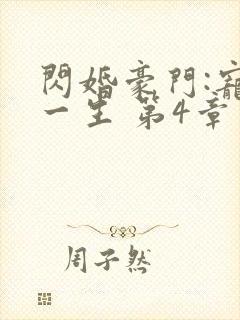 閃婚豪門:寵
一生 第4章
周子然